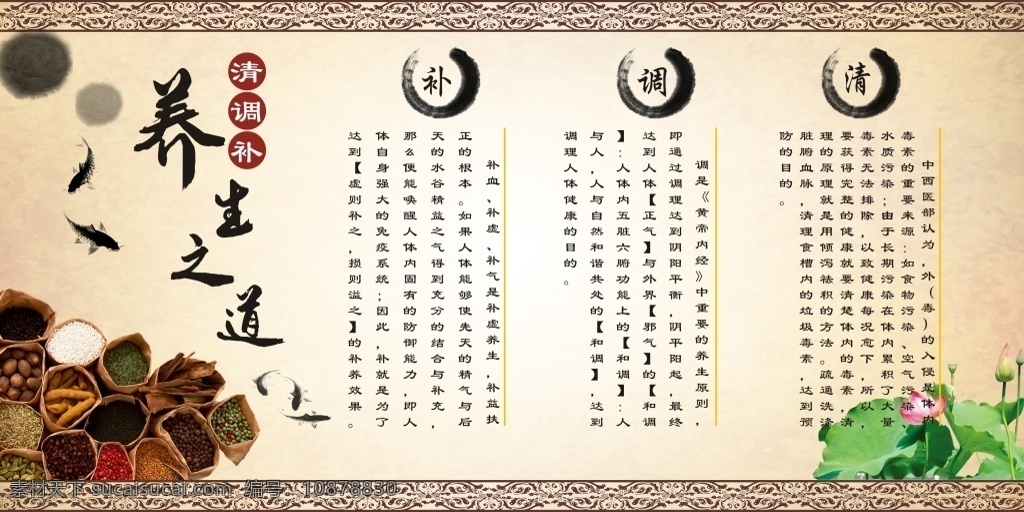 清调补
养生之道
清
中西医部认为，外（毒）的入侵是体内
毒素的重要来源：如食物污染、空气污染、
水质污染；由于长期污染在体内累积了大量
毒素无法排除，以致健康每况愈下，所以，
要获得完整的健康就要清楚体内的毒素，清
理的原理就是用倾泻祛积的方法。疏通洗涤
脏腑血脉，清理食槽内的垃圾毒素，达到预
防的目的。
调
调是《黄帝内经》中重要的养生原则，
即通过调理达到阴阳平衡，阴平阳起，最终
达到人体【正气】与外界【邪气】的【和调
】：人体内五脏六腑功能上的【和调】：人
与人，人与自然和谐共处的【和调】，达到
调理人体健康的目的。
补
补血、补虚、补气是补虚养生，补益扶
正的根本。如果人体能够使先天的精气与后
天的水谷精益之气得到充分的结合与补充，
那么便能唤醒人体内固有的防御能力，即人
体自身强大的免疫系统；因此，补就是为了
达到【虚则补之，损则溢之】的补养效果。
素材天下 sucaisucai.com 编号：10878830